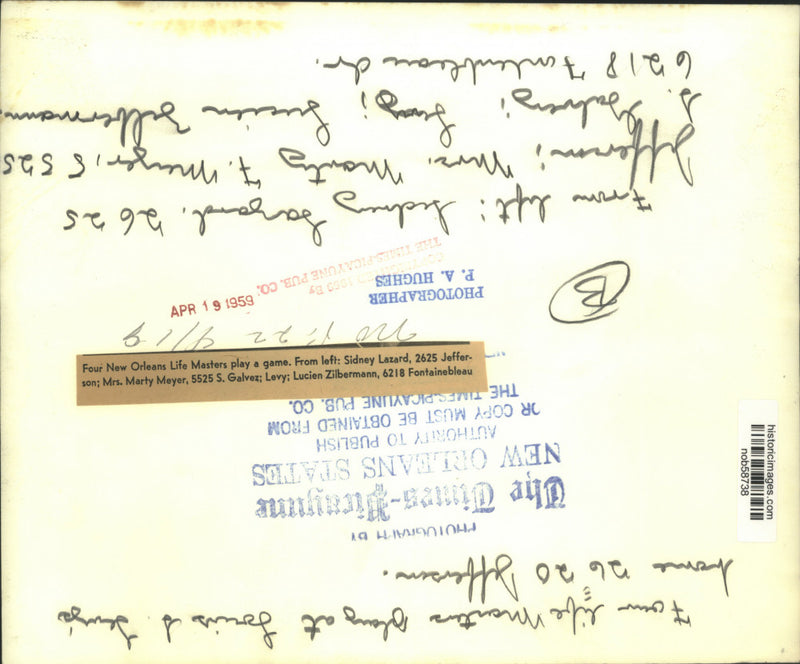 Four life Masters play at Louis S. Levy's
home 2620 Jefferson.
PHOTOGRAPH BY
The Times-Picayune
NEW ORLEANS STATES
AUTHORITY TO PUBLISH
OR COPY MUST BE OBTAINED FROM
THE TIMES-PICAYUNE PUB. CO.
Four New Orleans Life Masters play a game. From left: Sidney Lazard, 2625 Jeffer-
son; Mrs. Marty Meyer, 5525 S. Galvez; Levy; Lucien Zilbermann, 6218 Fontainebleau
4/19
APR 19 1959
PHOTOGRAPHER
P. A. HUGHES
COPYRIGHTED 1959 By
THE TIMES-PICAYUNE PUB. CO.
B
From left: Sidney Lazard, 2625
Jefferson; Mrs. Marty F. Meyer, 5525
S. Galvez; Levy; Lucien Zilbermann,
6218 Fontenbleau Dr.
historicimages.com
nob58738